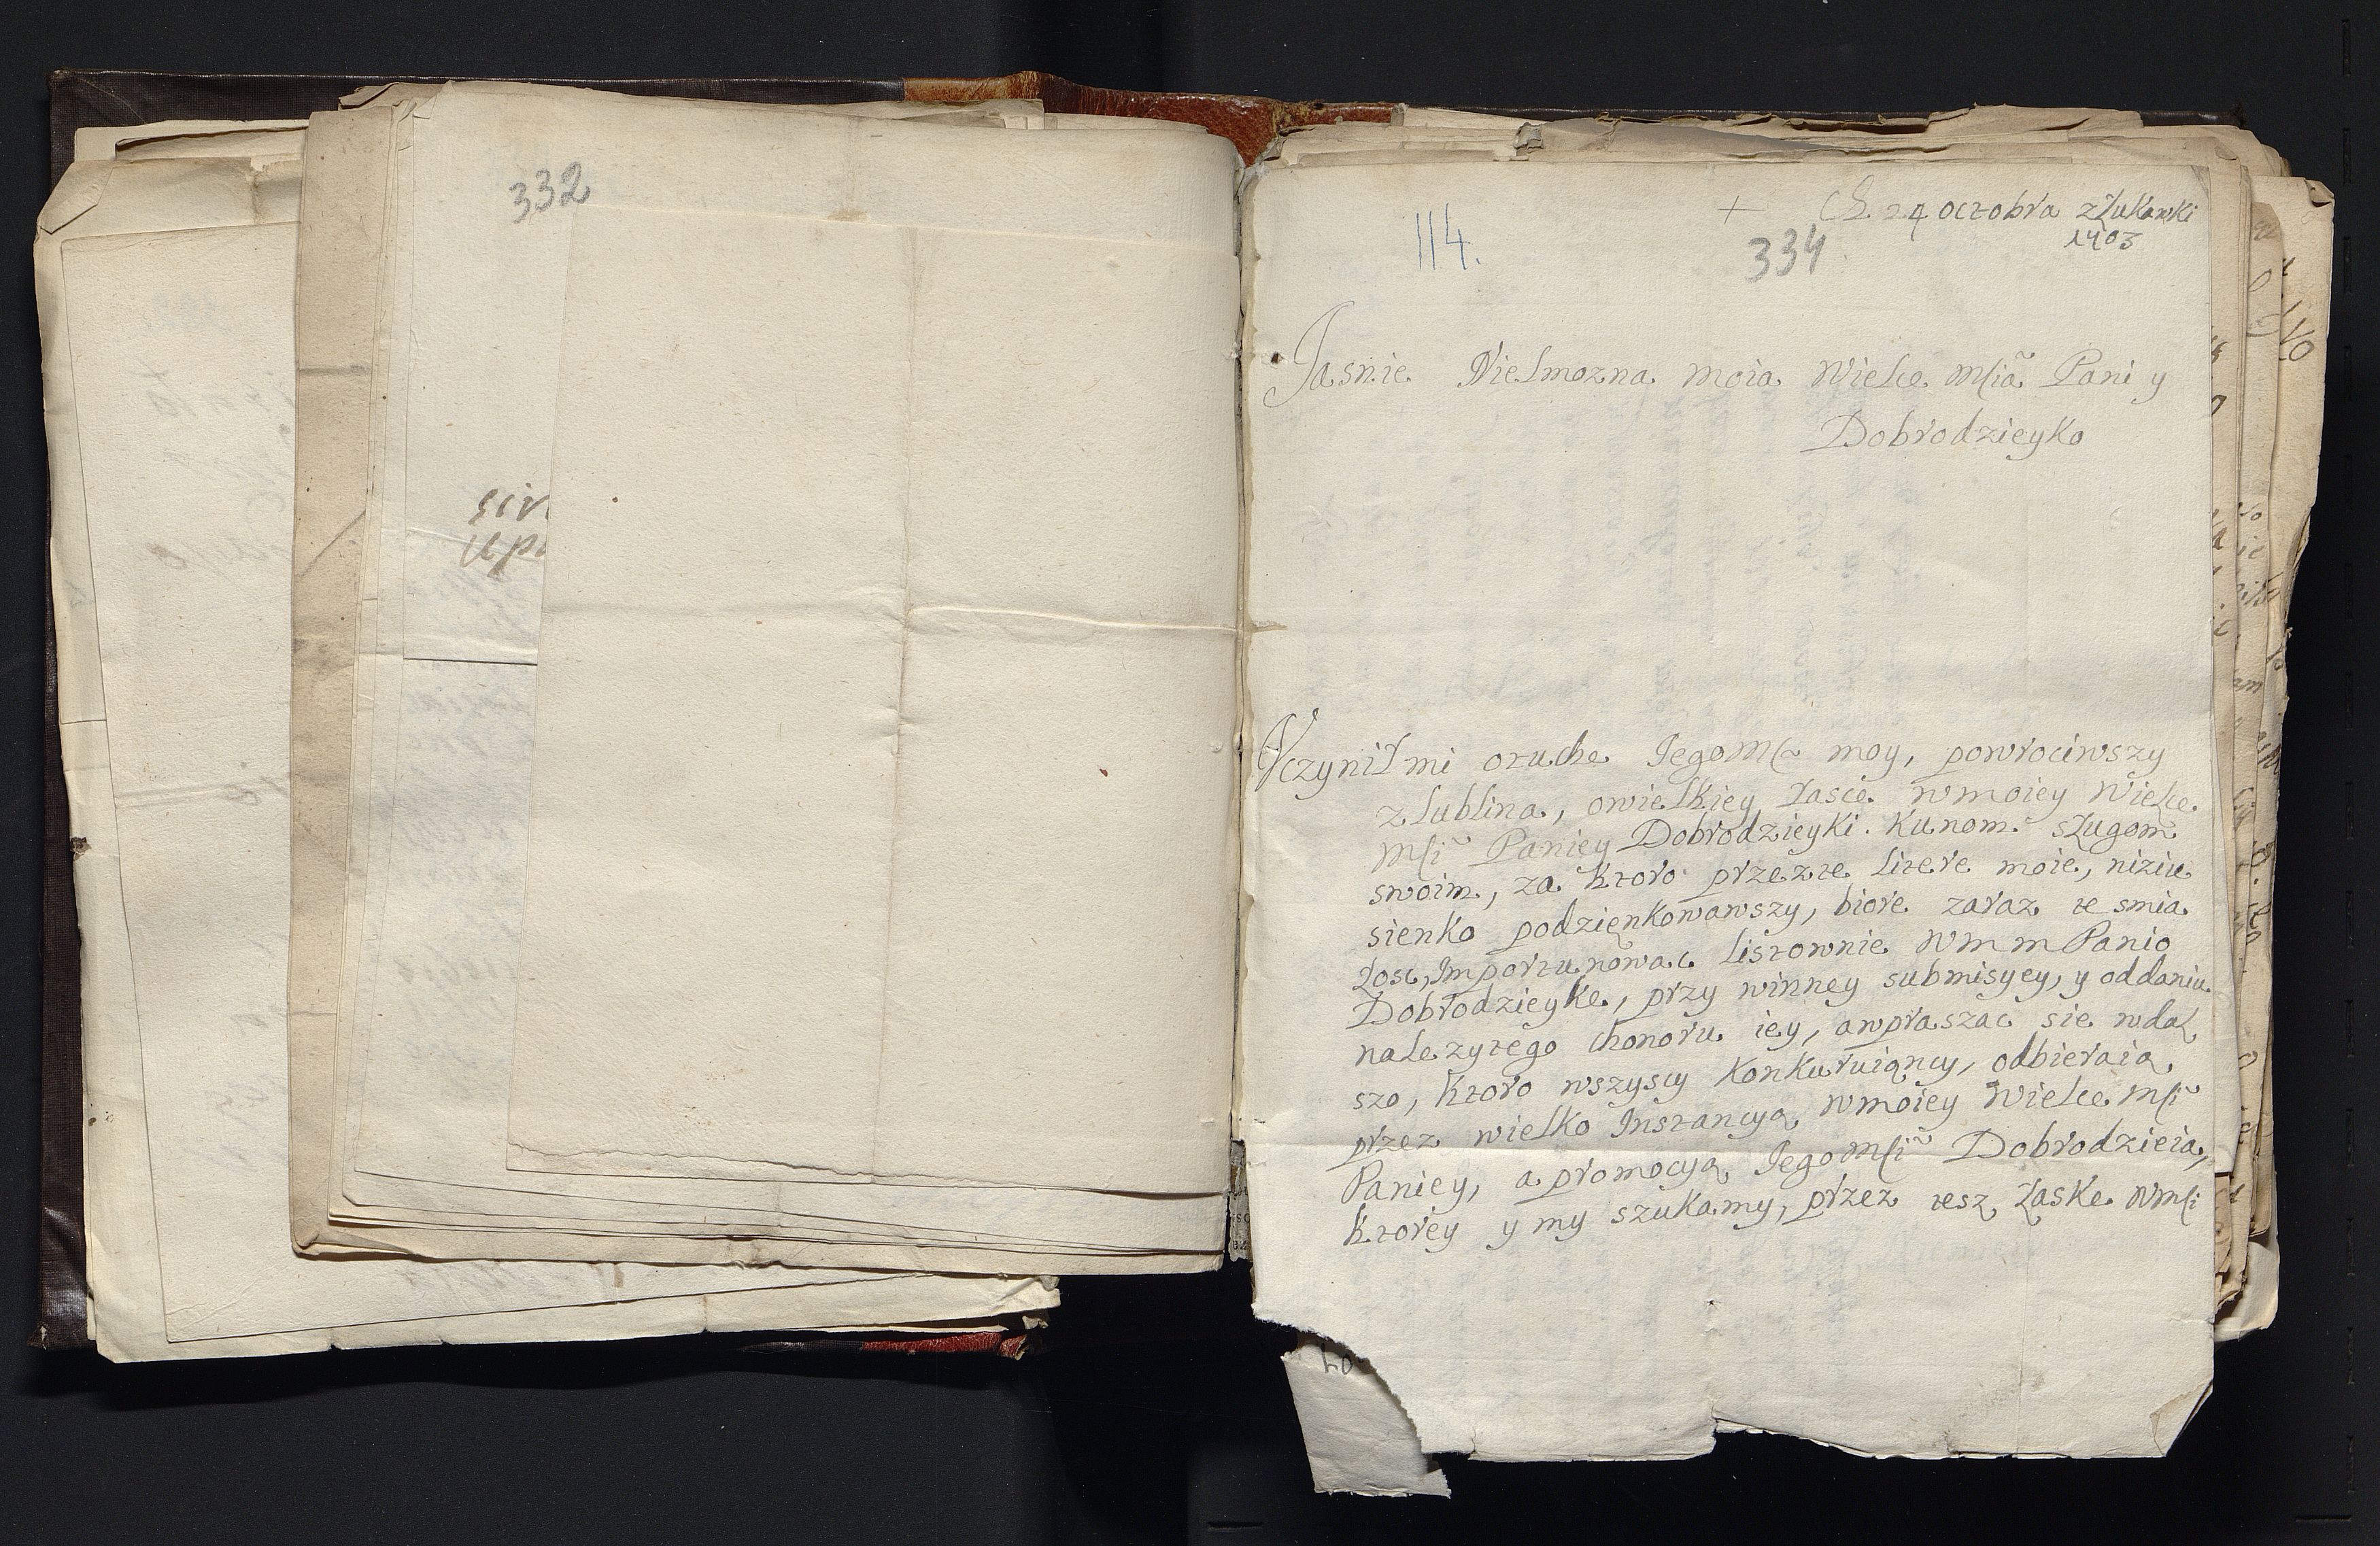 332
114.
+
24 octobra z Łukawki
334
1703
Jasnie Wielmozna moia Wielce Mſciã Pani y
Dobrodzieyko
Vczynił mi otuche Jegomſc moy, powrociwszy
z lublina, owielkiey łasce wmoiey Wielce
Mſci Paniey Dobrodzieyki. Kunom sługom
swoim, za Ktoro przezte litere moie, niziu
sienko podzięnkowawszy, biore zaraz te smia
łosc, Importunowac listownie Wm m Panio
Dobrodzieyke, przy winney submisyey, y oddaniu
nalezytego chonoru iey, awpraszac sie wdal
szo, Ktoro wszyscy Konkuruiąncy, odbieraią,
przez wielko Instancyą wmoiey Wielce Mſci
Paniey, a promocyą Jegomſci Dobrodzieia,
Ktorey y my szukamy, przez tesz łaske Wmſci